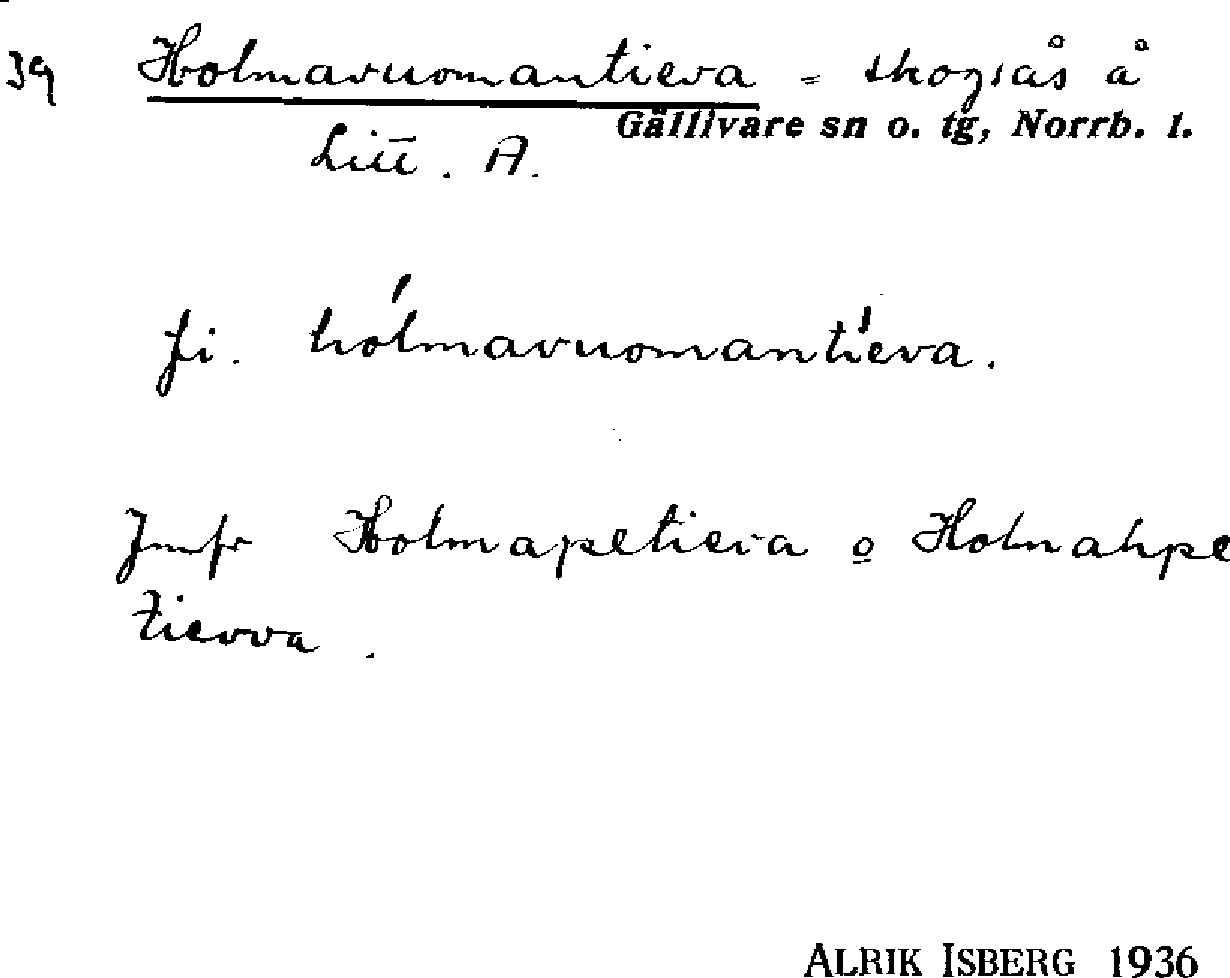 39 Holmavuomantieva = skogsås å
Gällivare sn o. tg, Norrb. l.
Litt. A.
fi. hólmavuomantíeva.
Jmfr Holmapetieva o Holmahpe
tievva.
ALRIK ISBERG 1936